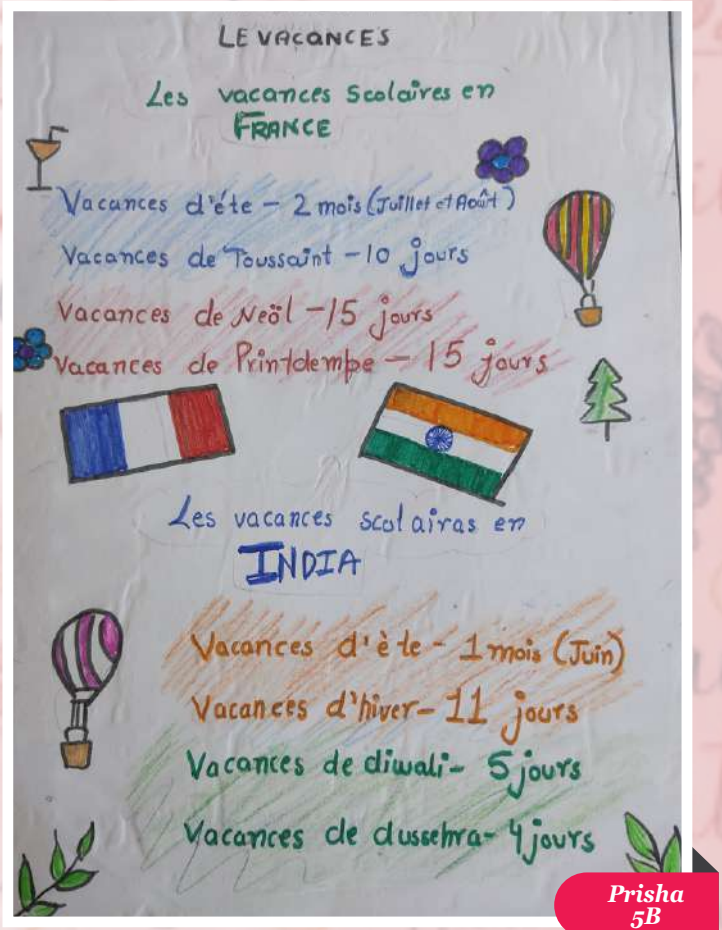 LE VACANCES
Les vacances Scolaires en
FRANCE
Vacances d'éte - 2 mois (Juillet et Août)
Vacances de Toussaint - 10 jours
Vacances de Neöl - 15 jours
Vacances de Printdempe - 15 jours
Les vacances scolairas en
INDIA
Vacances d'ète - 1 mois (Juin)
Vacances d'hiver - 11 jours
Vacances de diwali - 5 jours
Vacances de dussehra - 4 jours
Prisha
5B